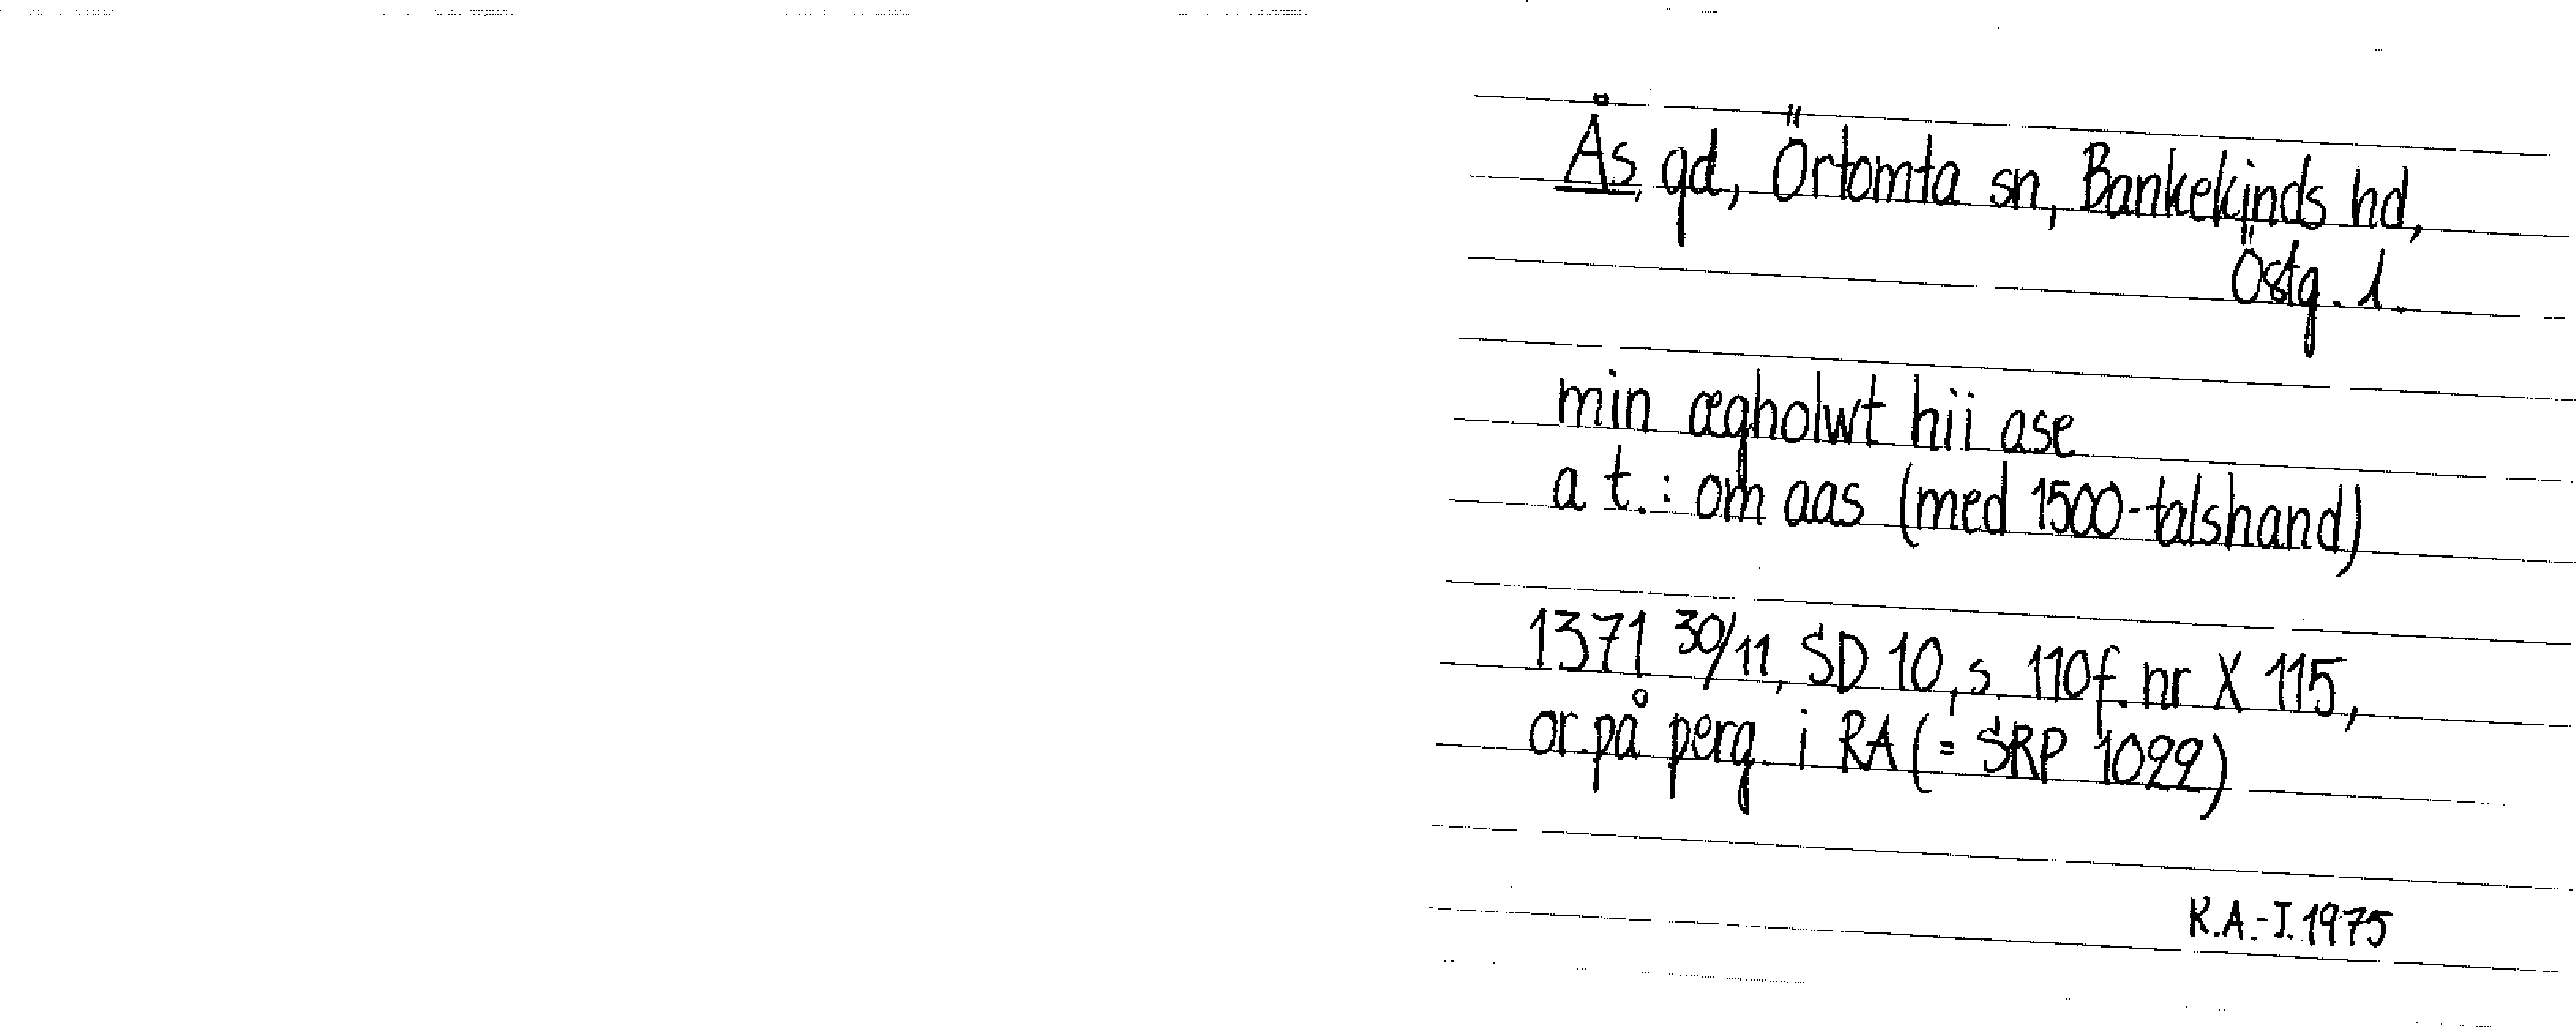 Ås, gd, Örtomta sn, Bankekinds hd,
Östg. l.
min ægholwt hii ase
a t.: om aas (med 1500-talshand)
1371 30/11, SD 10, s. 110f. nr X 115,
or. på perg. i RA (= SRP 1022)
K.A.-I. 1975